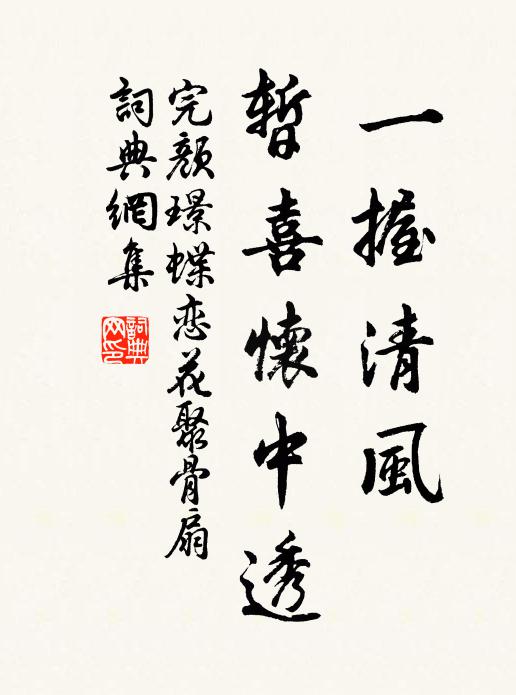 一握清風
暫喜懷中透
完顏璟蝶恋花聚骨扇
詞典網集
詞典
网印